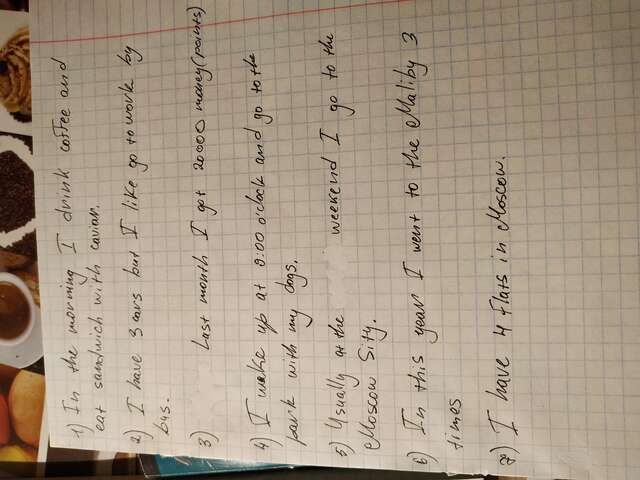 1) In the morning I drink coffee and
eat sandwich with caviar.
2) I have 3 cars but I like go to work by
bus.
3) Last month I got 20000 money (points)
4) I wake up at 9:00 o'clock and go to the
park with my dogs.
5) Usually at the weekend I go to the
Moscow Sity.
6) In this year I went to the Maliby 3
times
7) I have 4 flats in Moscow.